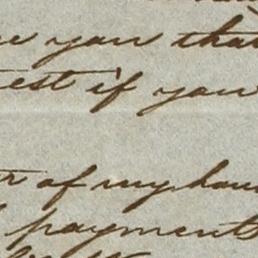 you that
est if you
of my hou
payments